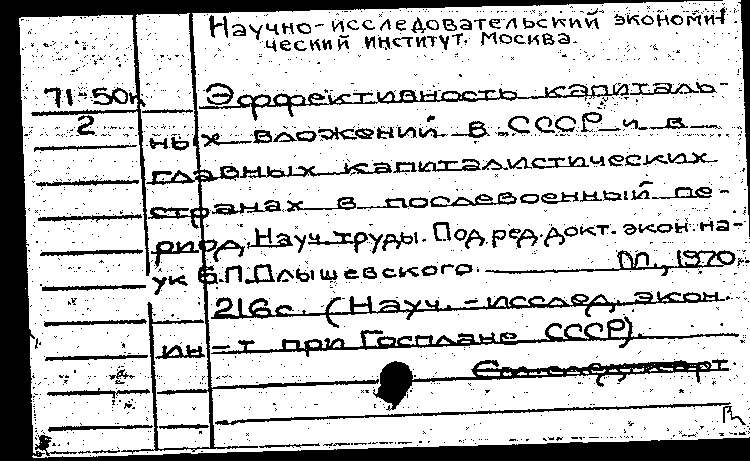 Научно-исследовательский экономи-
ческий институт. Москва.
71-50к
2
Эффективность капиталь-
ных вложений в СССР и в
главных капиталистических
странах в послевоенный пе-
риод. Науч. труды. Под ред. докт. экон. на-
ук Б.П. Плышевского. М., 1970.
216с. (Науч.-исслед. экон.
ин-т при Госплане СССР).
См. след. карт